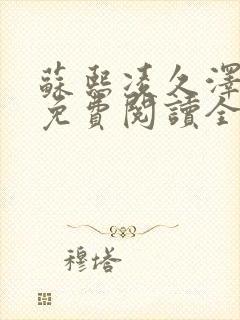 蘇熙凌久澤
免費閱讀全
穆塔